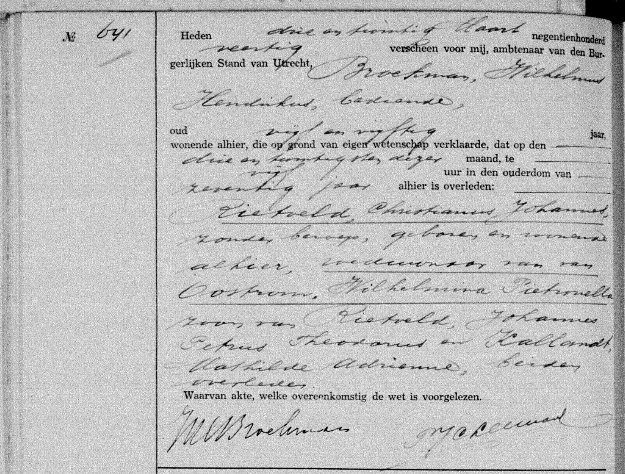 № 641
Heden drie en twintig Maart negentienhonderd
veertig verscheen voor mij, ambtenaar van den Bur-
gerlijken Stand van Utrecht, Broekman, Wilhelmus
Hendrikus, bediende,
oud vijf en vijftig jaar,
wonende alhier, die op grond van eigen wetenschap verklaarde, dat op den
drie en twintigsten dezer maand, te
vijf uur in den ouderdom van
zeventig jaar alhier is overleden:
Rietveld, Christianus Johannes,
zonder beroep, geboren en wonende
alhier, weduwnaar van van
Oostrum, Wilhelmina Pietronella
zoon van Rietveld, Johannes
Petrus Theodorus en Kallandt,
Mathilde Adrienne, beiden
overleden.
Waarvan akte, welke overeenkomstig de wet is voorgelezen.
Broekman